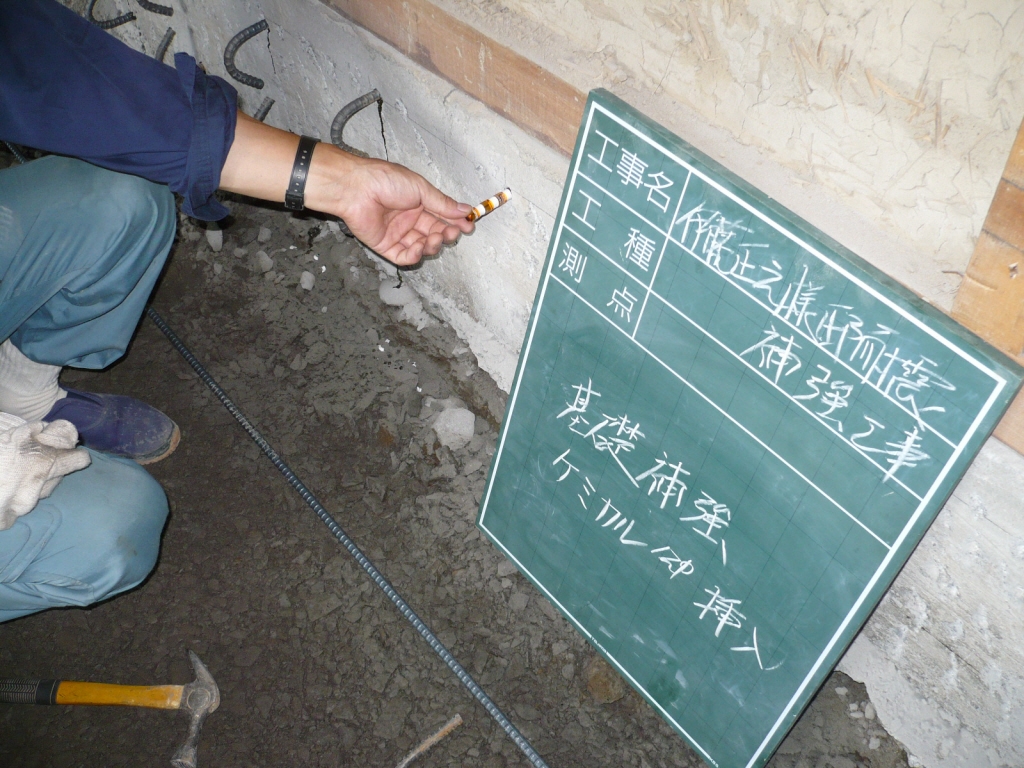 工事名
様邸耐震
補強工事
工種
測点
基礎補強、
ケミカル 挿入